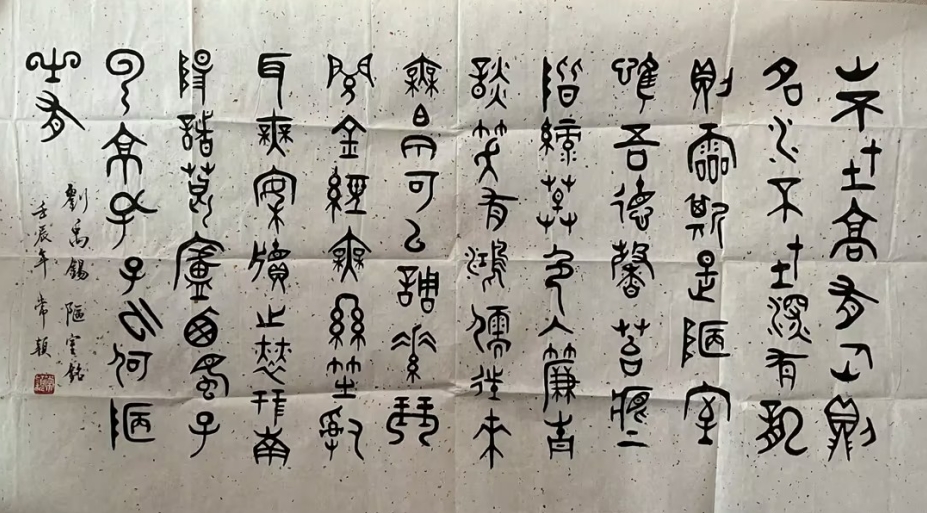 山不在高有仙則
名水不在深有龍
則靈斯是陋室
唯吾德馨苔痕上
階綠草色入簾青
談笑有鴻儒往來
無白丁可以調素琴
閱金經無絲竹亂
耳無案牘之勞形南
陽諸葛廬西蜀子
雲亭孔子云何陋
之有
劉禹錫 陋室銘
壬辰年 常